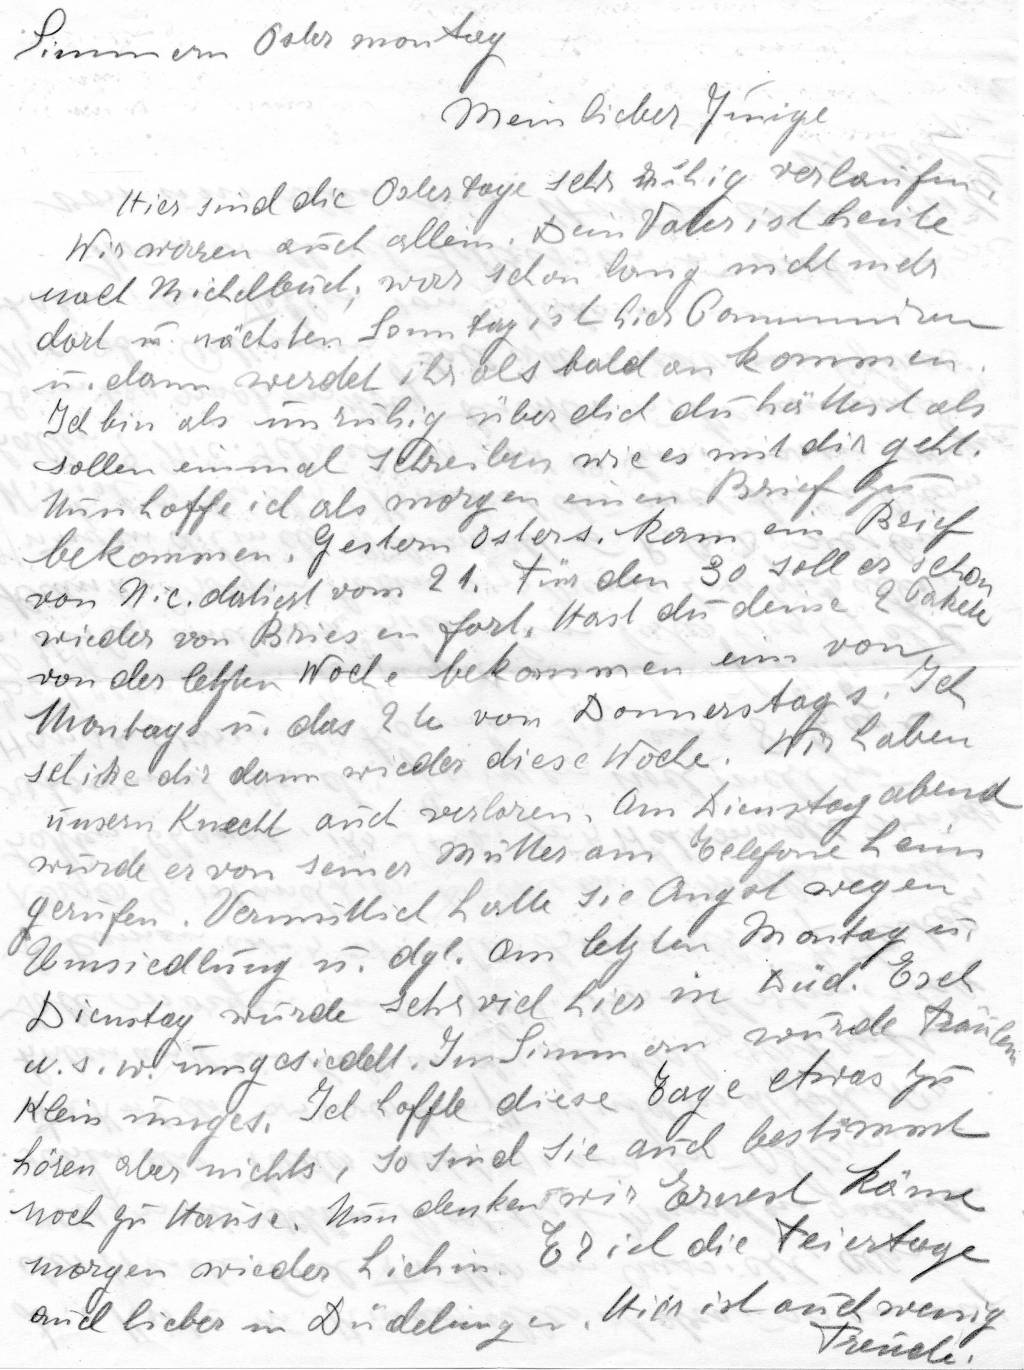 Simmern Ostermontag
Mein lieber Junige
Hier sind die Ostertage sehr ruhig verlaufen.
Wir waren auch allein. Dein Vater ist heute
nach Michelbuch, war schon lang nicht mehr
dort u. nächsten Sonntag ist hier Communion
u. dann werdet ihr als bald ankommen.
Ich bin als unruhig über dich du hättest als
sollen einmal schreiben wie es mit dir geht.
Nun hoffe ich als morgen einen Brief zu
bekommen. Gestern Osters. kam ein Brief
von N.c. datiert vom 21. Für den 30 soll er schon
wieder von Briesen fort. Hast du deine 2 Pakete
von der letzten Woche bekommen ein von
Montags u. das 2te von Donnerstags. Ich
schicke dir dann wieder diese Woche. Wir haben
unsern Knecht auch verloren. Am Dienstag abend
wurde er von seiner Mutter am Telefone heim
gerufen. Vermutlich hatte sie Angst wegen
Umsiedlung u. dgl. Am letzten Montag u.
Dienstag wurde sehr viel hier in Düd. Esch
u. s. w. umgesiedelt. In Simmern wurde Fräulein
Klein umges. Ich hoffte diese Tage etwas zu
hören aber nichts, so sind sie auch bestimmt
noch zu Hause. Nun denken wir Ernest käme
morgen wieder hiehin. Er ist die Feiertage
auch lieber in Düdelingen. Hier ist auch wenig
Freude.